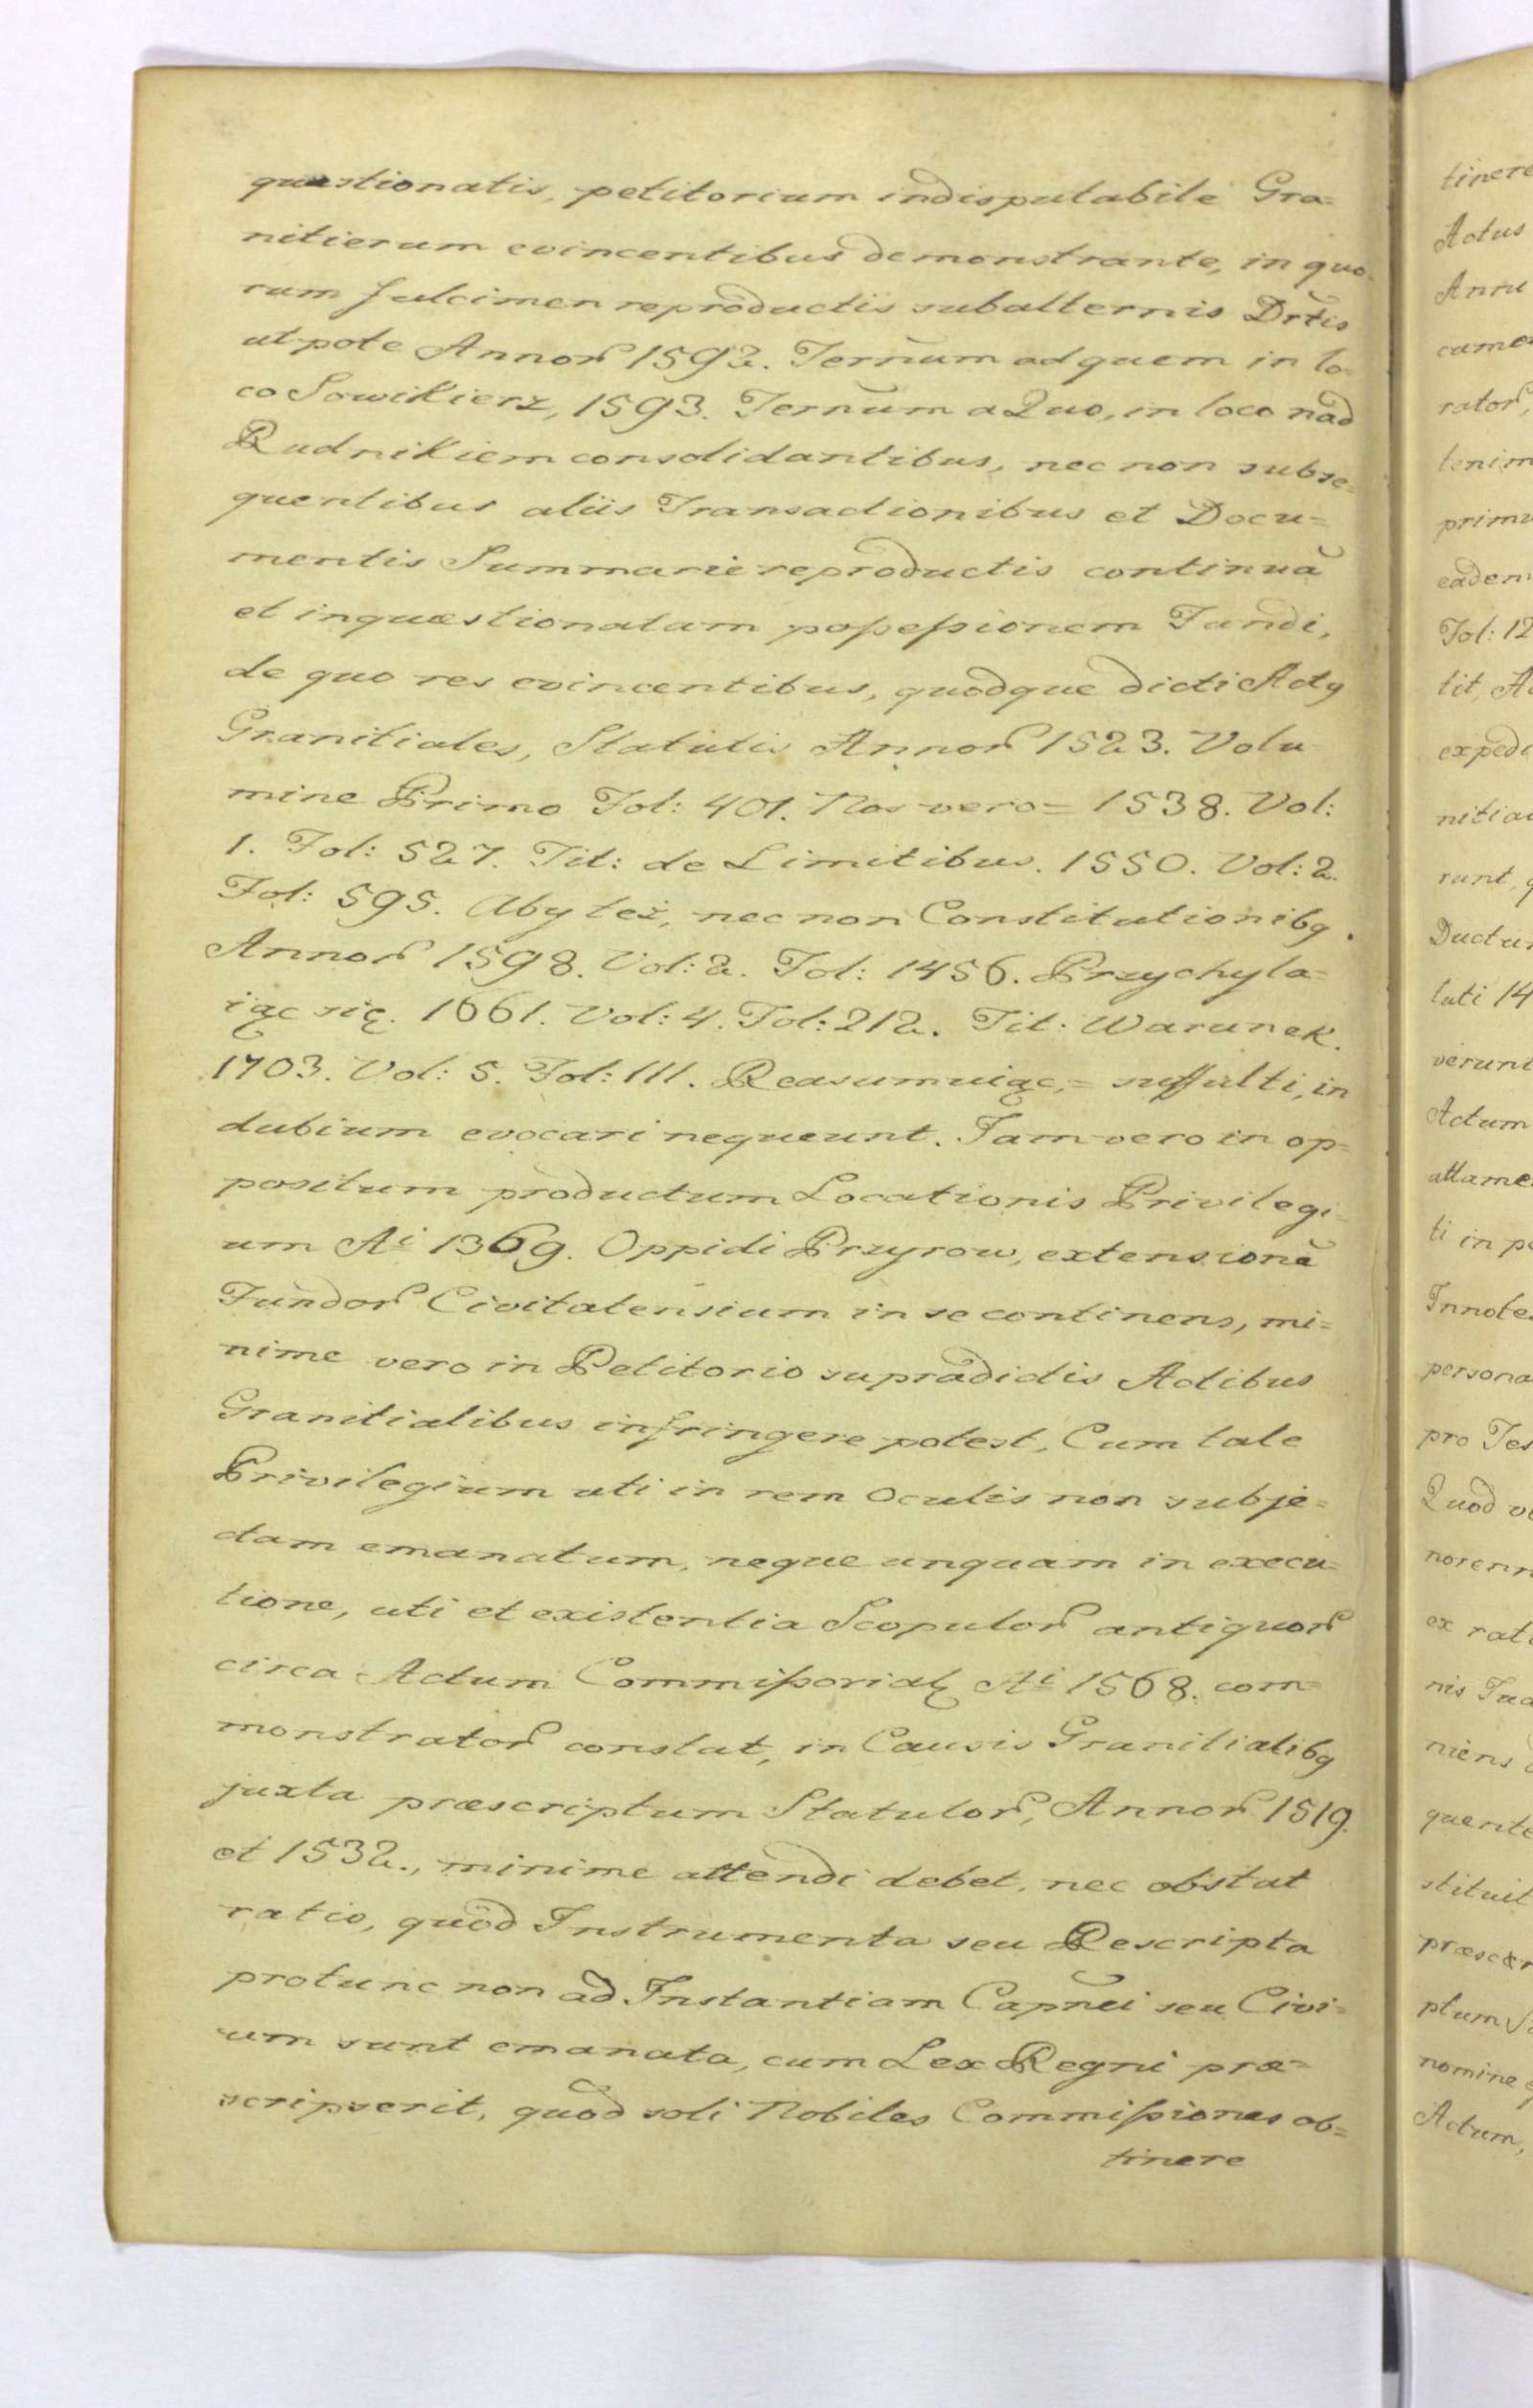 quæstionatis, petitorium indisputabile Gra=
nitierum evincentibus demonstrante, in quo=
rum fulcimen reproductis subalternis Drtis
utpote Annor 1592. Ternum ad quem in lo=
co Sowikierz, 1593. Ternum a Quo, in loco nad
Rudnikiem consolidantibus, nec non subse=
quentibus aliis Transactionibus et Docu=
mentis Summarie reproductis continuã
et inquæstionatam possessionem Fundi,
de quo res evincentibus, quodque dicti Actq
Granitiales, Statutis Annor 1523. Volu
mine Primo Fol: 401. Nos vero= 1538. Vol:
1. Fol: 527. Tit: de Limitibus. 1550. Vol: 2.
Fol: 595. Aby też, nec non Constitutionibq.
Annor 1598. Vol: 2. Fol: 1456. Przychyla=
iąc się. 1661. Vol: 4. Fol: 212. Tit: Warunek.
1703. Vol: 5. Fol: 111. Reasumuiąc,= suffulti, in
dubium evocari nequeunt. Jam vero in op=
positum productum Locationis Privilegi=
um Ai 1369. Oppidi Przyrow, extensionẽ
Fundor Civitatensium in se continens, mi=
nime vero in Petitorio supradictis Actibus
Granitialibus infringere potest, Cum tale
Privilegium uti in rem oculis non subje=
ctam emanatum, neque unquam in execu=
tione, uti et existentia Scopulor antiquor
circa Actum Commissorialẽ Ai 1568. com=
monstrator constat, in Causis Granitialibq
juxta præscriptum Statutor, Annor 1519.
et 1532., minime attendi debet, nec obstat
ratio, quod Instrumenta seu Rescripta
protunc non ad Instantiam Capnei seu Civi=
um sunt emanata, cum Lex Regni præ=
scripserit, quod soli Nobiles Commissiones ob=
tinere
tinere
Actus
Annu
rator,
tenim
primu
eadem
Fol: 12
tit, A
expedi
nitial
runt, q
Ductu
luti 14
verunt
Actum
attame
ti in p
Innote
persona
pro Tes
Quod v
norenn
ex rati
nis Jud
niens d
quente
stituit
præscr
ptum S
nomine
Actum,